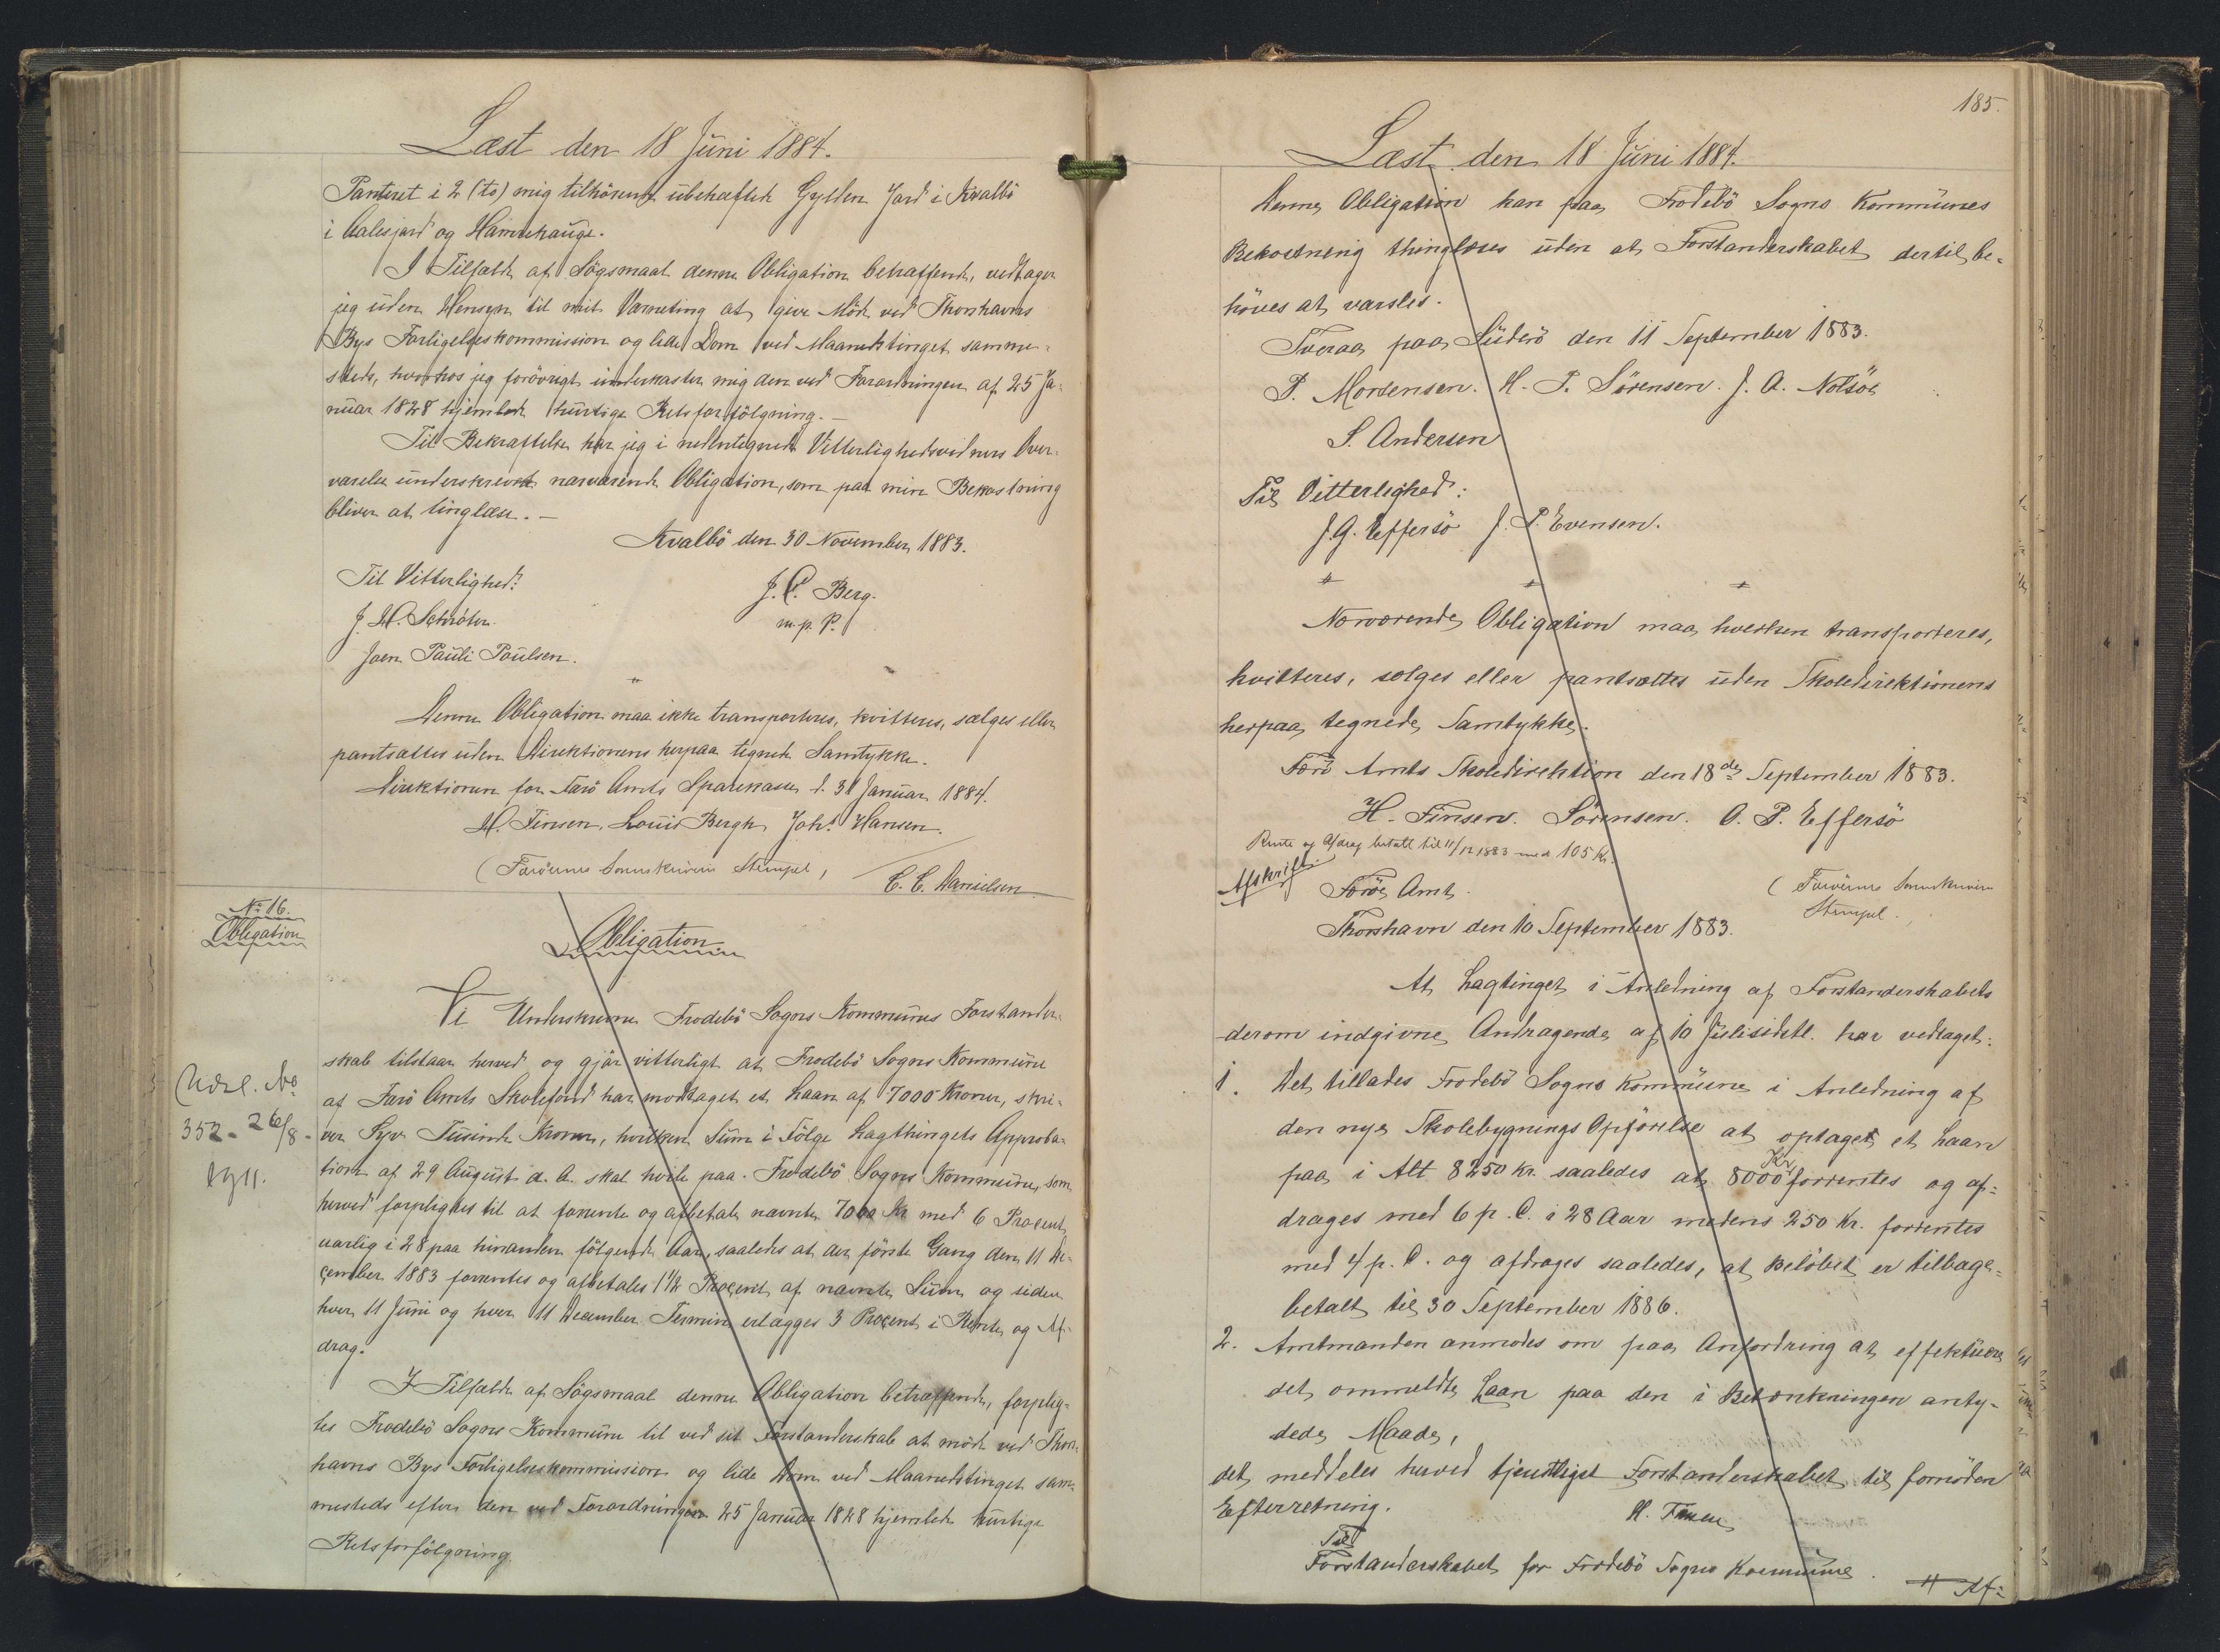 Læst den 18 Juni 1884.
Panteret i 2 (to) mig tilhörende ubehæftede Gylden Jord i Kvalbö
i Aalesjord og Hamrehauge.
I Tilfælde af Sögsmaal denne Obligation betræffende, vedtager
jeg uden Hensyn til mit Værneting at give Möde ved Thorshavns
Bys Forligelseskommission og lide Dom ved Maanedstinget samme-
steds, hvorhos jeg forövrigt underkaster mig den ved Forordningen af 25 Ja-
nuar 1828 hjemlede hurtige Retsforfölgning. —
Til Bekræftelse har jeg i nedentegnede Vitterlighedsvidners Over-
værelse underskrevet nærværende Obligation, som paa min Bekostning
bliver at tinglæse. —
Kvalbö den 30 November 1883.
Til Vitterlighed:
J. C. Berg.
J. H. Schröter.
m. p. P.
Joen Pauli Poulsen.
"
Denne Obligation maa ikke transporteres, kvitteres, sælges eller
pantsættes uden Direktionens herpaa tegnede Samtykke.
Direktionen for Færö Amts Sparekasse d. 31 Januar 1884.
H. Finsen, Louis Bergh, Johs. Hansen.
(Færöernes Sorenskriveris Stempel,
C. C. Danielsen
No 16.
Obligation
Obligation.
Vi Underskrevne Frodebö Sogns Kommunes Forstander-
skab tilstaar herved og gjör vitterligt at Frodebö Sogns Kommune
af Færö Amts Skolefond har modtaget et Laan af 7000 Kroner, skri-
ver Syv Tusinde Kroner, hvilken Sum i Fölge Lagthingets Approba-
tion af 29 August d. A. skal hvile paa Frodebö Sogns Kommune, som
herved forpligtes til at forrente og afbetale nævnte 7000 Kr med 6 Procent
aarlig i 28 paa hinanden fölgende Aar, saaledes at der förste Gang den 11 De-
cember 1883 forrentes og afbetales 1 1/2 Procent af nævnte Sum og siden
hver 11 Juni og hver 11 December Termin erlægges 3 Procent i Rente og Af-
drag.
I Tilfælde af Sögsmaal denne Obligation betræffende, forplig-
tes Frodebö Sogns Kommune til ved sit Forstanderskab at möde ved Thors-
havns Bys Forligelseskommission og lide Dom ved Maanedstinget sam-
mesteds efter den ved Forordningen 25 Januar 1828 hjemlede hurtige
Retsforfölgning.
Udsl. No
352 - 26/8 -
1911.
185.
Læst den 18 Juni 1884.
Denne Obligation kan paa Frodebö Sogns Kommunes
Bekostning thinglæses uden at Forstanderskabet dertil be-
höves at varsles.
Tveraa paa Suderö den 11 September 1883.
P. Mortensen. H. P. Sörensen. J. A. Nolsöe
S. Andersen
Til Vitterlighed:
J. G. Effersö J. P. Evensen.
Nærværende Obligation maa hverken transporteres,
kvitteres, sælges eller pantsættes uden Skoledirektionens
herpaa tegnede Samtykke.
Færö Amts Skoledirektion den 18de September 1883.
H. Finsen. Sörensen. O. P. Effersö
Rente og Afdrag betalt til 11/12 1883 med 105 Kr.
Afskrift.
Færöe Amt.
(Færöernes Sorenskriveri
Stempel.
Thorshavn den 10 September 1883.
At Lagtinget i Anledning af Forstanderskabets
derom indgivne Andragende af 10 Juli sidstl. har vedtaget:
1. Det tillades Frodebö Sogns Kommune i Anledning af
den nye Skolebygnings Opförelse at optage et Laan
paa i Alt 8250 Kr. saaledes at 8000 Kr forrentes og af-
drages med 6 p. C. i 28 Aar medens 250 Kr. forrentes
med 4 p. C. og afdrages saaledes, at Belöbet er tilbage-
betalt til 30 September 1886.
2. Amtmanden anmodes om paa Anfordring at effektuere
det ommeldte Laan paa den i Betænkningen anty-
dede Maade,
det meddeles herved tjenstligst Forstanderskabet til fornöden
Efterretning.
H. Finsen
Til
Forstanderskabet for Frodebö Sogns Kommune.
Af-